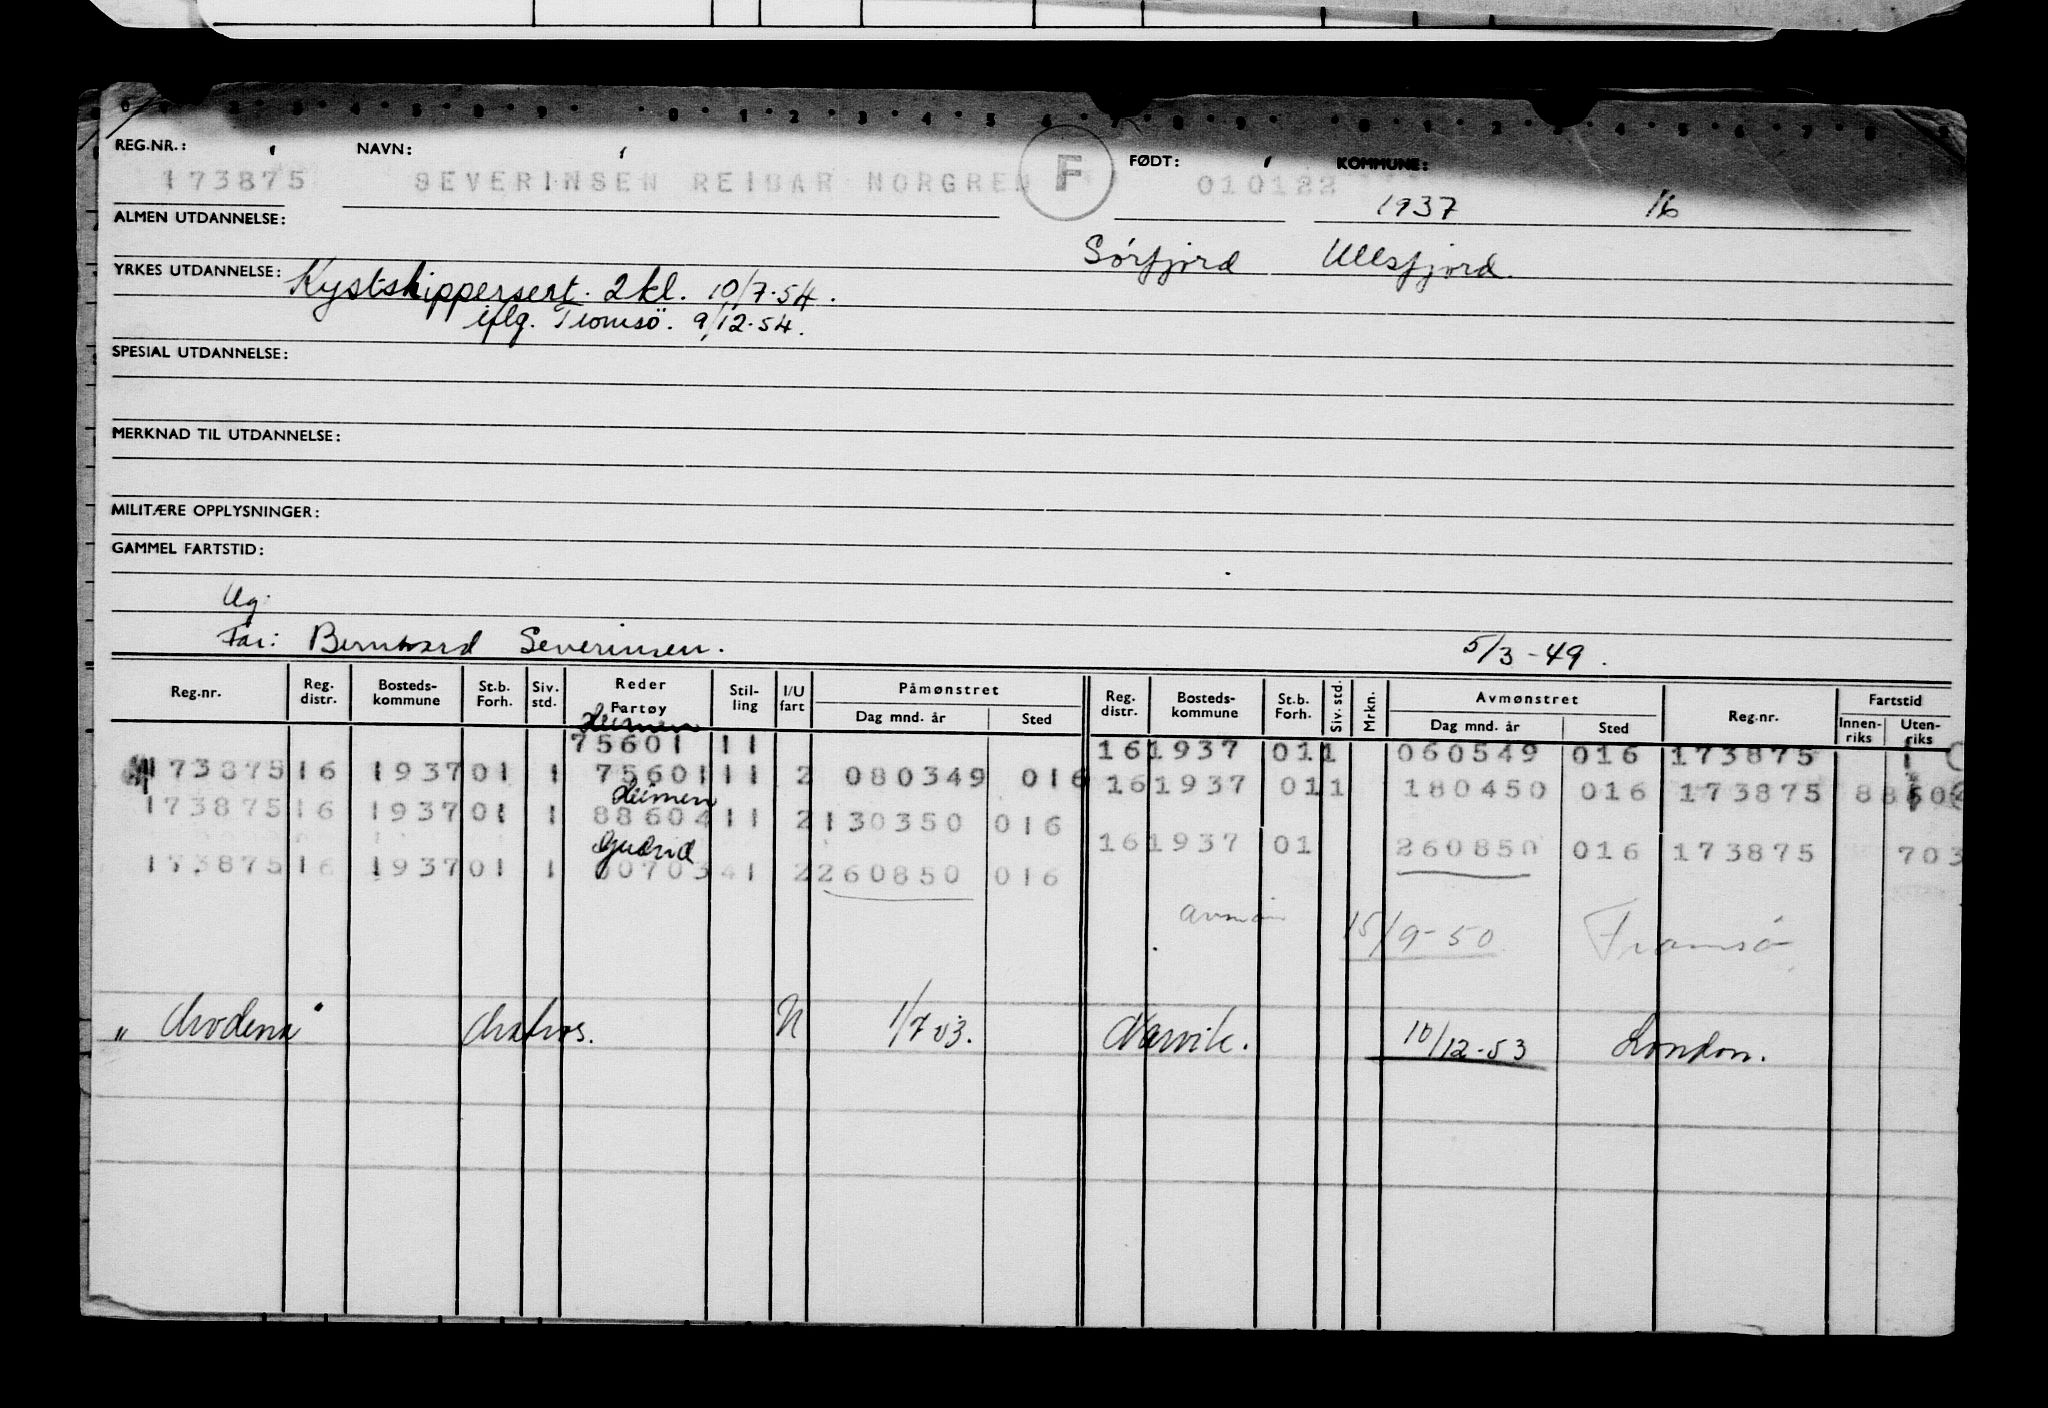 REG.NR.: NAVN: FØDT: KOMMUNE:
173875 SEVERINSEN REIDAR NORGREN F 010122 1937 16
ALMEN UTDANNELSE:
Sörfjord Ullsfjord.
YRKES UTDANNELSE: Kystskippersert. 2kl. 10/7-54.
iflg. Tromsö. 9/12-54.
SPESIAL UTDANNELSE:
MERKNAD TIL UTDANNELSE:
MILITÆRE OPPLYSNINGER:
GAMMEL FARTSTID:
Ug.
Far: Bernhard Severinsen. 5/3-49.
Reg.nr. Reg. distr. Bosteds-kommune St.b. Forh. Siv. std. Reder Fartøy Stil-ling I/U fart Påmønstret Dag mnd. år Sted Reg. distr. Bosteds-kommune St.b. Forh. Siv. std. Mrkn. Avmønstret Dag mnd. år Sted Reg.nr. Fartstid Innen-riks Uten-riks
75601 11 16 1937 01 1 060549 016 173875
173875 16 1937 01 1 75601 11 2 080349 016 16 1937 01 1 180450 016 173875
173875 16 1937 01 1 88604 11 2 130350 016 16 1937 01 260850 016 173875 703
Gudrid
173875 16 1937 01 1 0703 41 2 260850 016
15/9-50 Tromsö
"Modena" Matros. U 1/7 53. Narvik. 10/12-53 London.